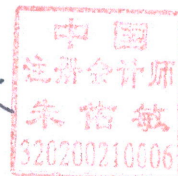 中国
注册会计师
朱佑敏
320200210006